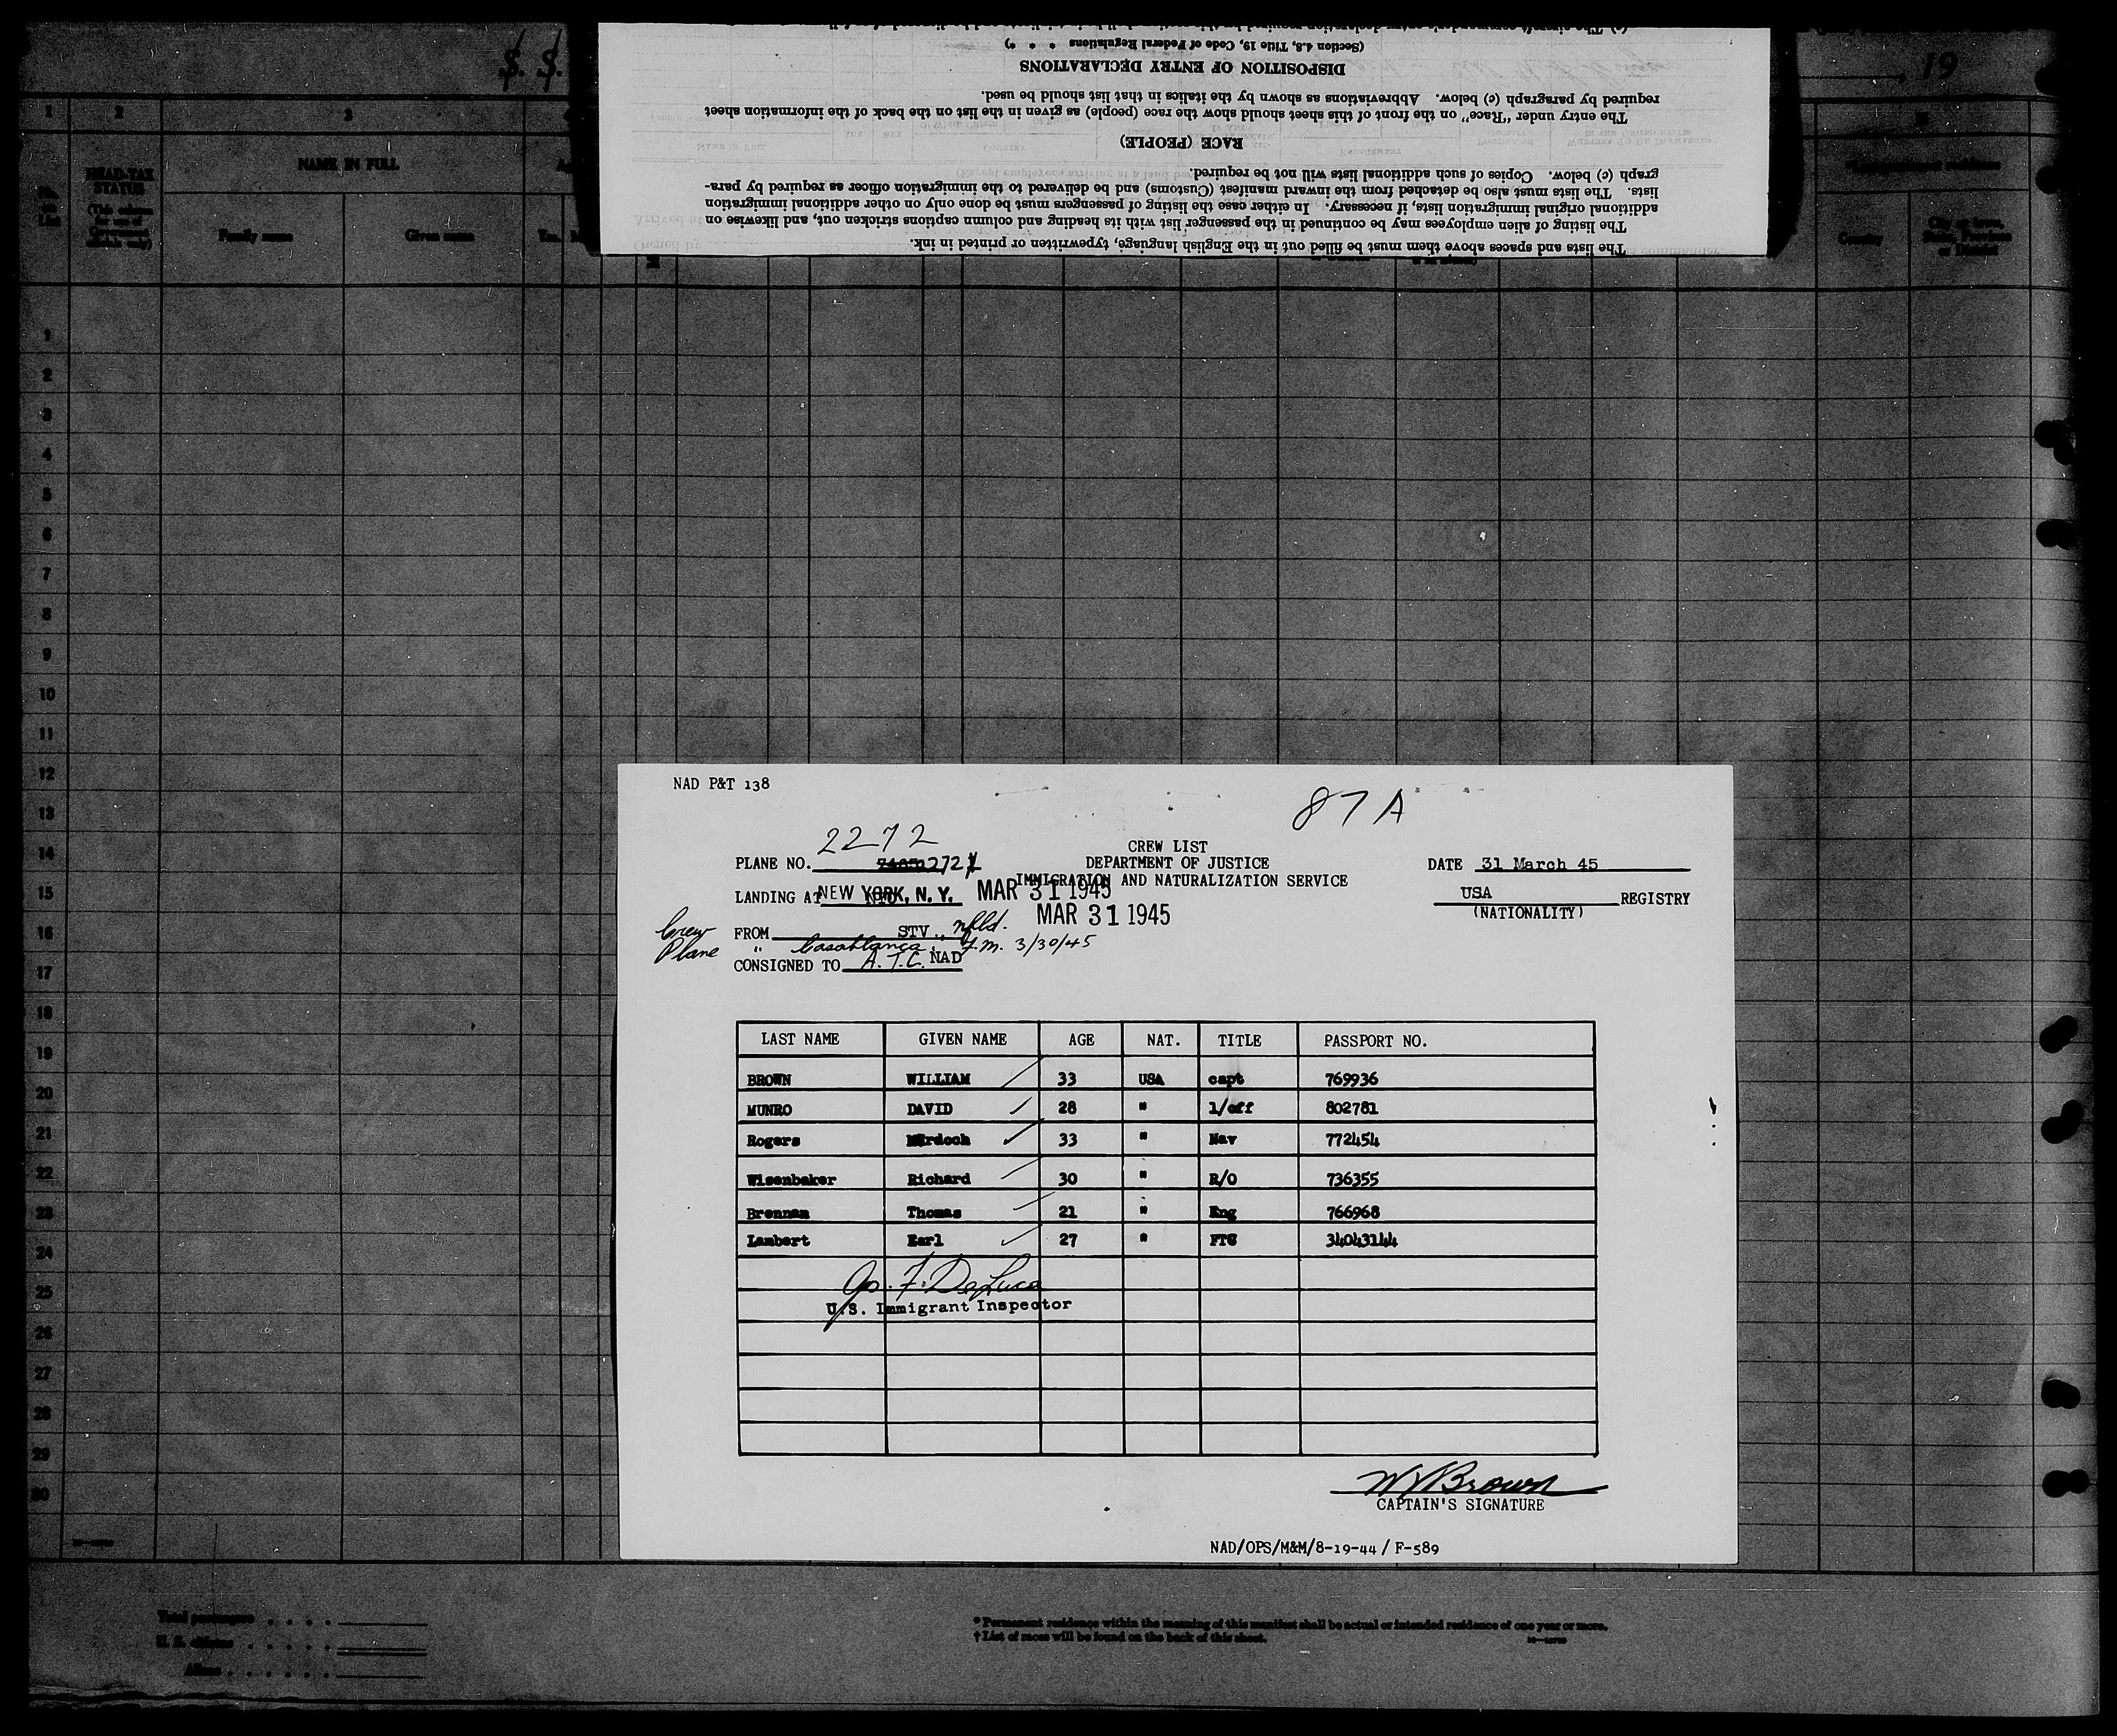 S. S.
, 19
1
2
3
HEAD-TAX STATUS
(This column for use of Government officials only)
NAME IN FULL
Family name
Given name
Yrs.
No. on List
Country
(c) The aircraft commander's entry declaration required by this section shall be in triplicate and be disposed of as fol-
(Section 4.8, Title 19, Code of Federal Regulations * * *)
DISPOSITION OF ENTRY DECLARATIONS
required by paragraph (c) below. Abbreviations as shown by the italics in that list should be used.
The entry under "Race" on the front of this sheet should show the race (people) as given in the list on the back of the information sheet
RACE (PEOPLE)
graph (c) below. Copies of such additional lists will not be required.
lists. The lists must also be detached from the inward manifest (Customs) and be delivered to the immigration officer as required by para-
additional original immigration lists, if necessary. In either case the listing of passengers must be done only on other additional immigration
The listing of alien employees may be continued in the passenger list with its heading and column captions stricken out, and likewise on
The lists and spaces above them must be filled out in the English language, typewritten or printed in ink.
1
2
3
4
5
6
7
8
9
10
11
12
13
14
15
16
17
18
19
20
21
22
23
24
25
26
27
28
29
30
NAD P&T 138
87A
2272
CREW LIST
PLANE NO. 272
DEPARTMENT OF JUSTICE
DATE 31 March 45
IMMIGRATION AND NATURALIZATION SERVICE
LANDING AT NEW YORK, N. Y. MAR 31 1945
USA REGISTRY
MAR 31 1945
(NATIONALITY)
Crew FROM STV., nfld.
Plane " Casablanca, F.M. 3/30/45
CONSIGNED TO A.T.C. NAD
LAST NAME GIVEN NAME AGE NAT. TITLE PASSPORT NO.
BROWN WILLIAM 33 USA capt 769936
MUNRO DAVID 28 " 1/off 802781
Rogers Murdoch 33 " Nav 772454
Wisenbaker Richard 30 " R/O 736355
Brennan Thomas 21 " Eng 766968
Lambert Earl 27 " FTC 34043144
Jos. F. DeLuca
U.S. Immigrant Inspector
W V Brown
CAPTAIN'S SIGNATURE
NAD/OPS/M&M/8-19-44 / F-589
Total passengers . . . .
U. S. citizens . . . . .
Aliens . . . . . .
* Permanent residence within the meaning of this manifest shall be actual or intended residence of one year or more.
† List of races will be found on the back of this sheet.